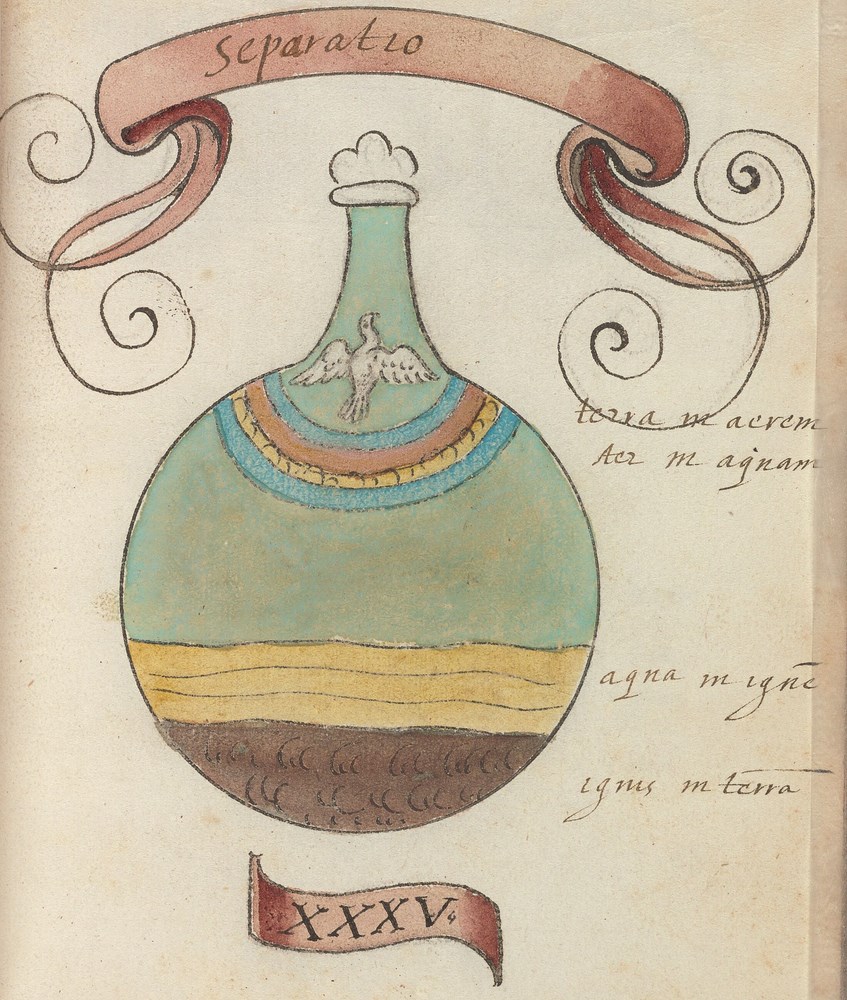 separatio
terra in aerem
Aer in aquam
aqua in ignē
ignis in terra
XXXV